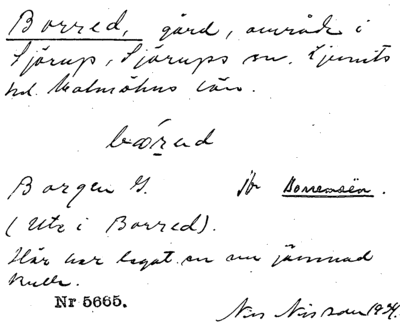 Borred, gård, område i
Sjörup, Sjörups sn. Ljunits
hd. Malmöhus län.
Borgen G. jfr
(Ute i Borred).
Här har legat en nu jämnad
kulle.
Nr 5665.
Nils Nilsson 1934.